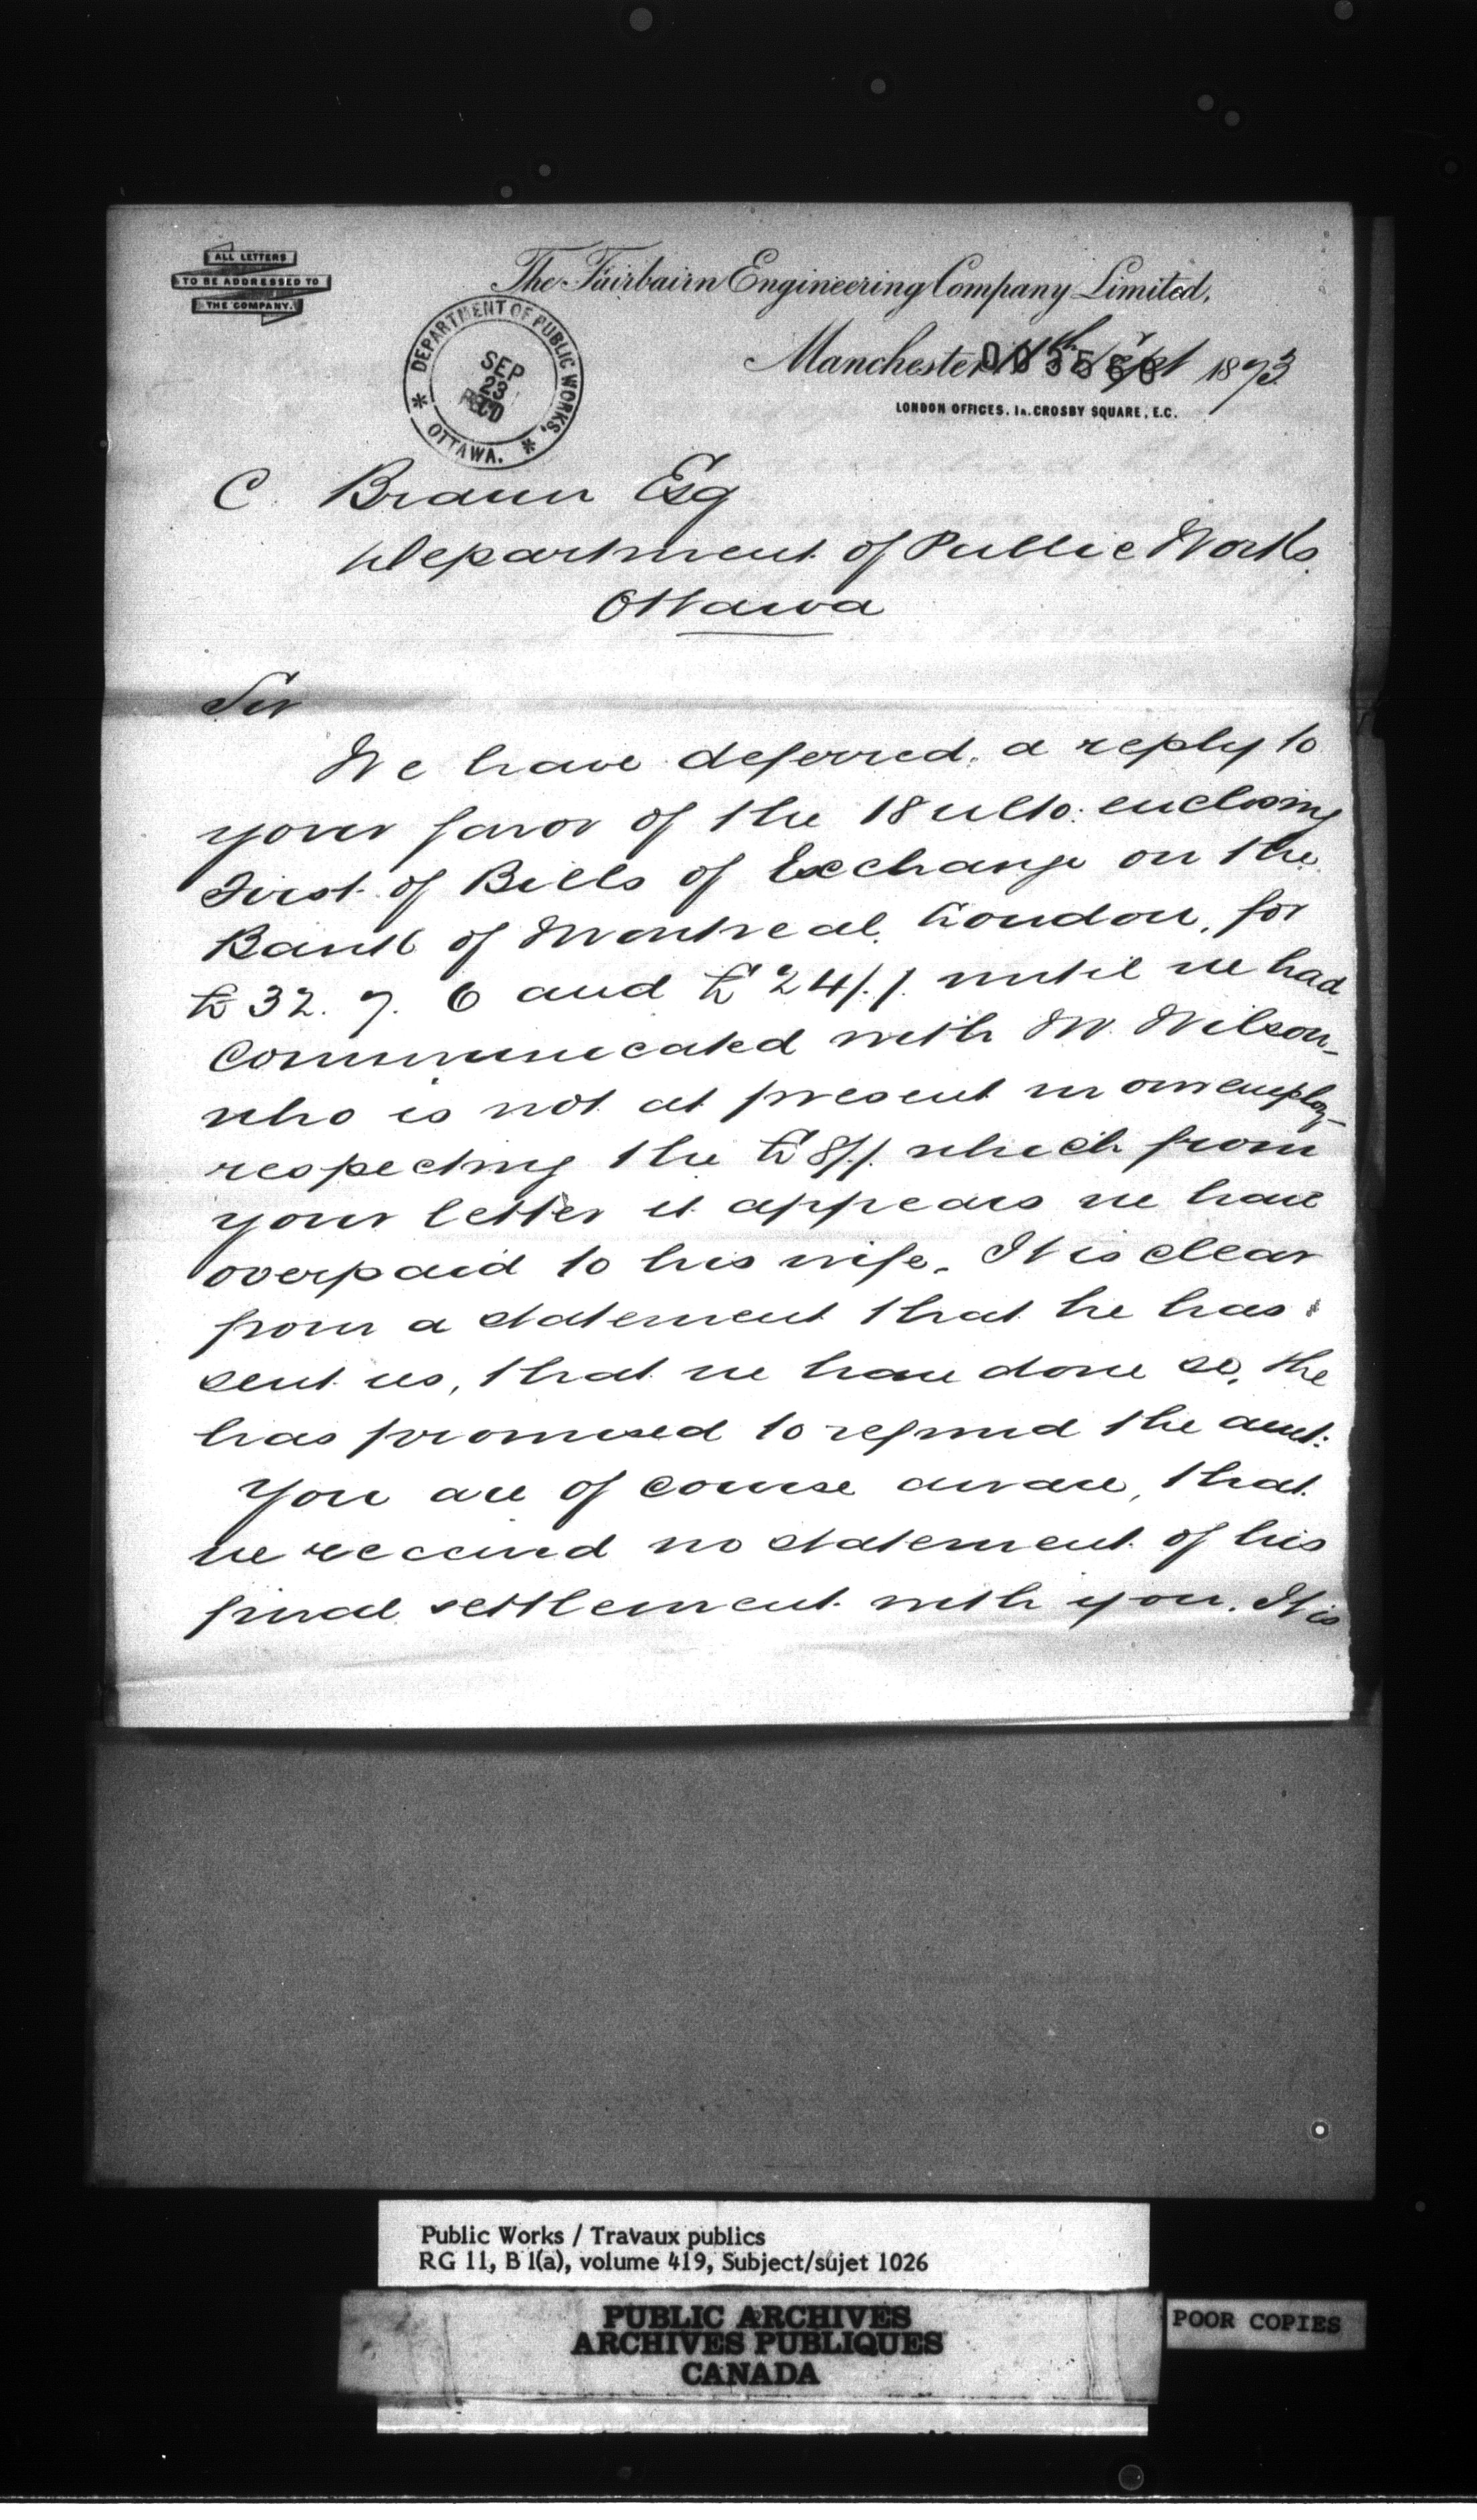 ALL LETTERS
TO BE ADDRESSED TO
THE COMPANY.
The Fairbairn Engineering Company Limited,
Manchester Sept 1873
003566
LONDON OFFICES, 1A. CROSBY SQUARE, E.C.
DEPARTMENT OF PUBLIC WORKS,
SEP
23
REC'D
OTTAWA.
C. Braun Esq
Department of Public Works.
Ottawa
Sir
We have deferred a reply to
your favor of the 18 ulto. enclosing
First of Bills of Exchange on the
Bank of Montreal, London, for
£32. 7. 6 and £24/./. until we had
communicated with W. Wilson-
who is not at present in our employ-
respecting the £8/./. which from
your letter it appears we have
overpaid to his wife. It is clear
from a statement that he has
sent us, that we have done so, & he
has promised to refund the amt:
You are of course aware, that
we received no statement of his
final settlement with you. It is
Public Works / Travaux publics
RG 11, B 1(a), volume 419, Subject/sujet 1026
PUBLIC ARCHIVES
ARCHIVES PUBLIQUES
CANADA
POOR COPIES